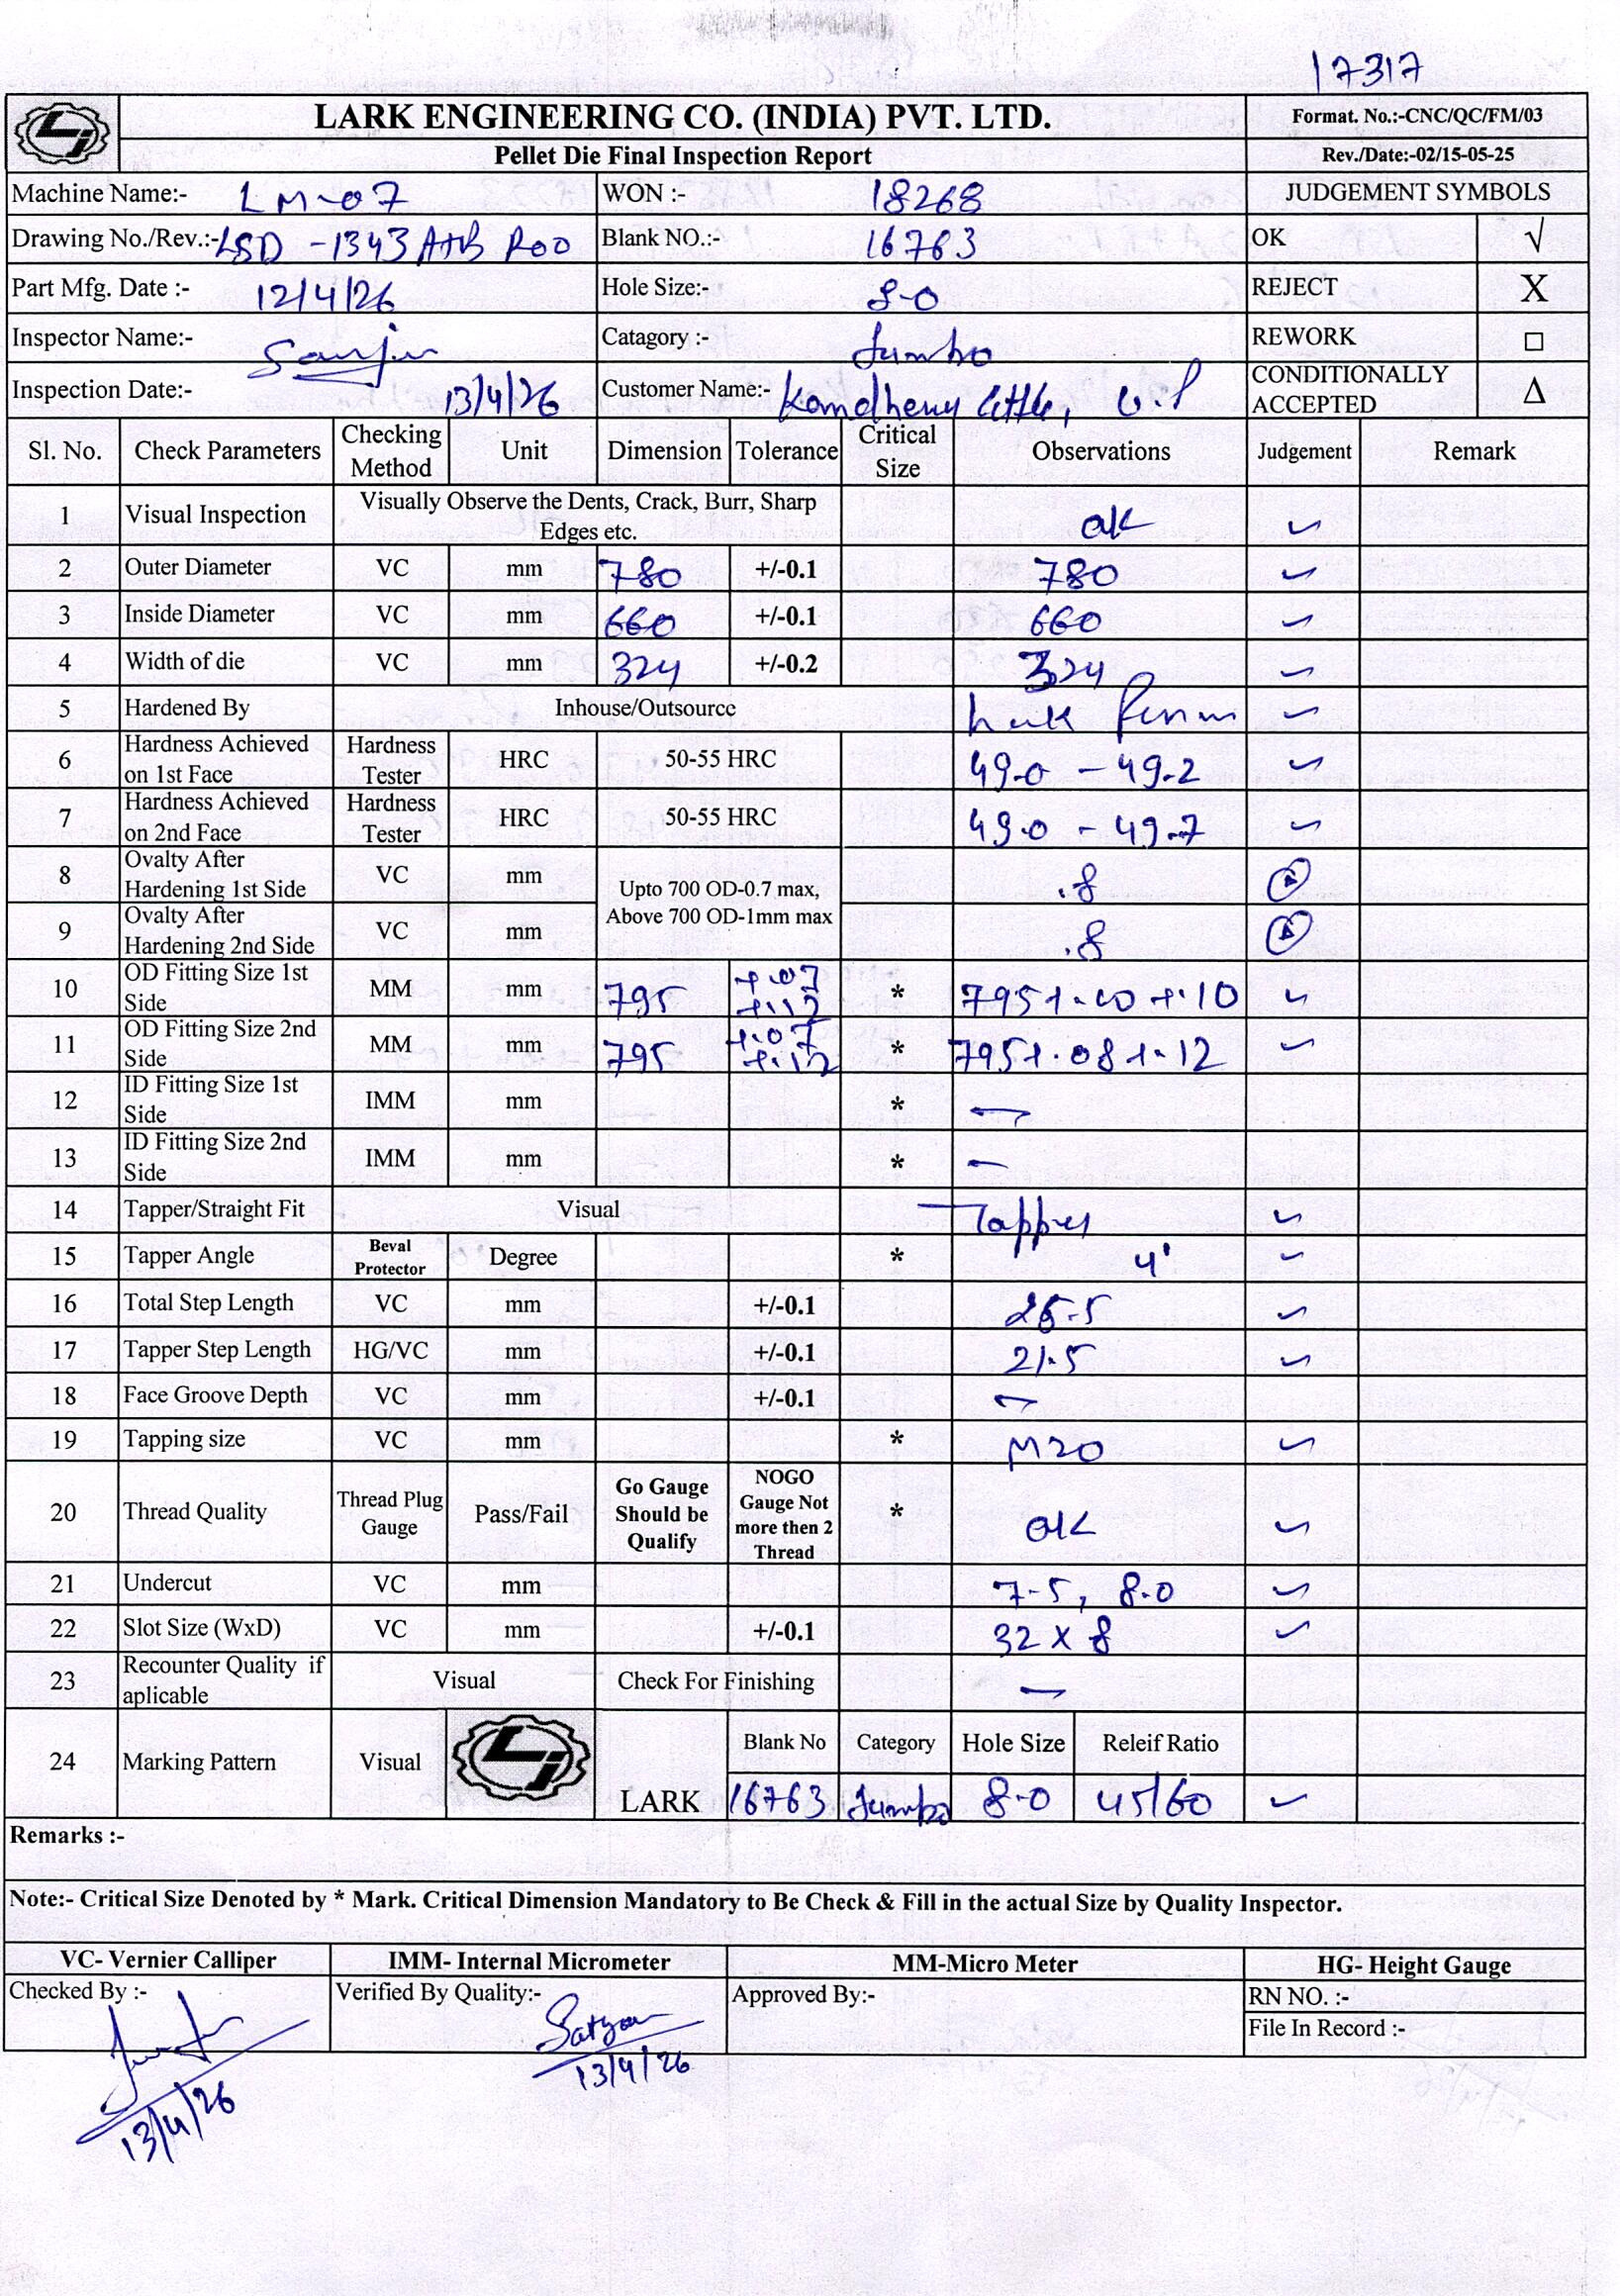 17317
LARK ENGINEERING CO. (INDIA) PVT. LTD.
Format. No.:-CNC/QC/FM/03
Pellet Die Final Inspection Report
Rev./Date:-02/15-05-25
Machine Name:- LM-07 WON :- 18268 JUDGEMENT SYMBOLS
Drawing No./Rev.:- LSD -1343 A+B R00 Blank NO.:- 16763 OK √
Part Mfg. Date :- 12/4/26 Hole Size:- 8.0 REJECT X
Inspector Name:- Catagory :- Jumbo REWORK □
Inspection Date:- 13/4/26 Customer Name:- CONDITIONALLY ACCEPTED Δ
Sl. No. Check Parameters Checking Method Unit Dimension Tolerance Critical Size Observations Judgement Remark
1 Visual Inspection Visually Observe the Dents, Crack, Burr, Sharp Edges etc. ok ✓
2 Outer Diameter VC mm 780 +/-0.1 780 ✓
3 Inside Diameter VC mm 660 +/-0.1 660 ✓
4 Width of die VC mm 324 +/-0.2 324 ✓
5 Hardened By Inhouse/Outsource ✓
6 Hardness Achieved on 1st Face Hardness Tester HRC 50-55 HRC 49.0 - 49.2 ✓
7 Hardness Achieved on 2nd Face Hardness Tester HRC 50-55 HRC 49.0 - 49.7 ✓
8 Ovalty After Hardening 1st Side VC mm Upto 700 OD-0.7 max, Above 700 OD-1mm max .8 Δ
9 Ovalty After Hardening 2nd Side VC mm .8 Δ
10 OD Fitting Size 1st Side MM mm 795 +.07 +.12 * 795+.00 +.10 ✓
11 OD Fitting Size 2nd Side MM mm 795 +.07 +.12 * 795+.08 +.12 ✓
12 ID Fitting Size 1st Side IMM mm * —
13 ID Fitting Size 2nd Side IMM mm * —
14 Tapper/Straight Fit Visual Tapper ✓
15 Tapper Angle Beval Protector Degree * 4' ✓
16 Total Step Length VC mm +/-0.1 ✓
17 Tapper Step Length HG/VC mm +/-0.1 21.5 ✓
18 Face Groove Depth VC mm +/-0.1 —
19 Tapping size VC mm * M20 ✓
20 Thread Quality Thread Plug Gauge Pass/Fail Go Gauge Should be Qualify NOGO Gauge Not more then 2 Thread * ok ✓
21 Undercut VC mm 7.5, 8.0 ✓
22 Slot Size (WxD) VC mm +/-0.1 32 x 8 ✓
23 Recounter Quality if aplicable Visual Check For Finishing —
24 Marking Pattern Visual LARK Blank No Category Hole Size Releif Ratio
16763 Jumbo 8.0 45/60 ✓
Remarks :-
Note:- Critical Size Denoted by * Mark. Critical Dimension Mandatory to Be Check & Fill in the actual Size by Quality Inspector.
VC- Vernier Calliper IMM- Internal Micrometer MM-Micro Meter HG- Height Gauge
Checked By :- Verified By Quality:- Approved By:- RN NO. :-
File In Record :-
Satyam
13/4/26
13/4/26